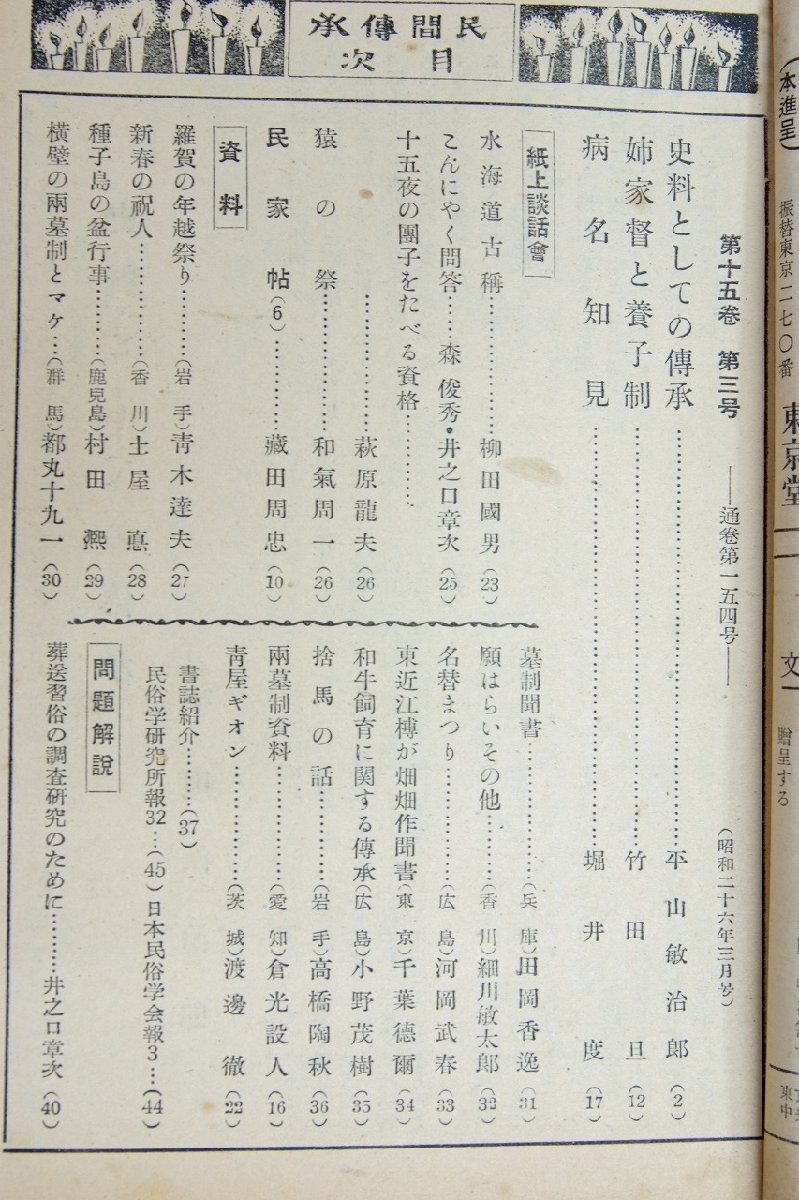 民間傳承
目次
第十五卷　第三号　――通卷第一五四号――　（昭和二十六年三月号）
史料としての傳承…………平山敏治郎（2）
姉家督と養子制…………竹田旦（12）
病名知見…………堀井度（17）
紙上談話會
水海道古稱…………柳田國男（23）
こんにやく問答……森俊秀・井之口章次（25）
十五夜の團子をたべる資格…………
…………萩原龍夫（26）
猿の祭…………和氣周一（26）
民家帖（6）…………藏田周忠（10）
資料
羅賀の年越祭り……（岩手）靑木達夫（27）
新春の祝人…………（香川）土屋　（28）
種子島の盆行事…………（鹿児島）村田熙（29）
橫壁の兩墓制とマケ…（群馬）都丸十九一（30）
墓制聞書…………（兵庫）田岡香逸（31）
願はらいその他………（香川）細川敏太郎（32）
名替まつり…………（広島）河岡武春（33）
東近江榑が畑畑作聞書（東京）千葉德爾（34）
和牛飼育に関する傳承（広島）小野茂樹（35）
捨馬の話…………（岩手）高橋陶秋（36）
兩墓制資料…………（愛知）倉光設人（16）
靑屋ギオン…………（茨城）渡邊徹（22）
書誌紹介………（37）
民俗学研究所報32…（45）日本民俗学会報3…（44）
問題解說
葬送習俗の調査研究のために………井之口章次（40）
（本進呈）
振替東京二七〇番
東京堂
文
贈呈する
東中